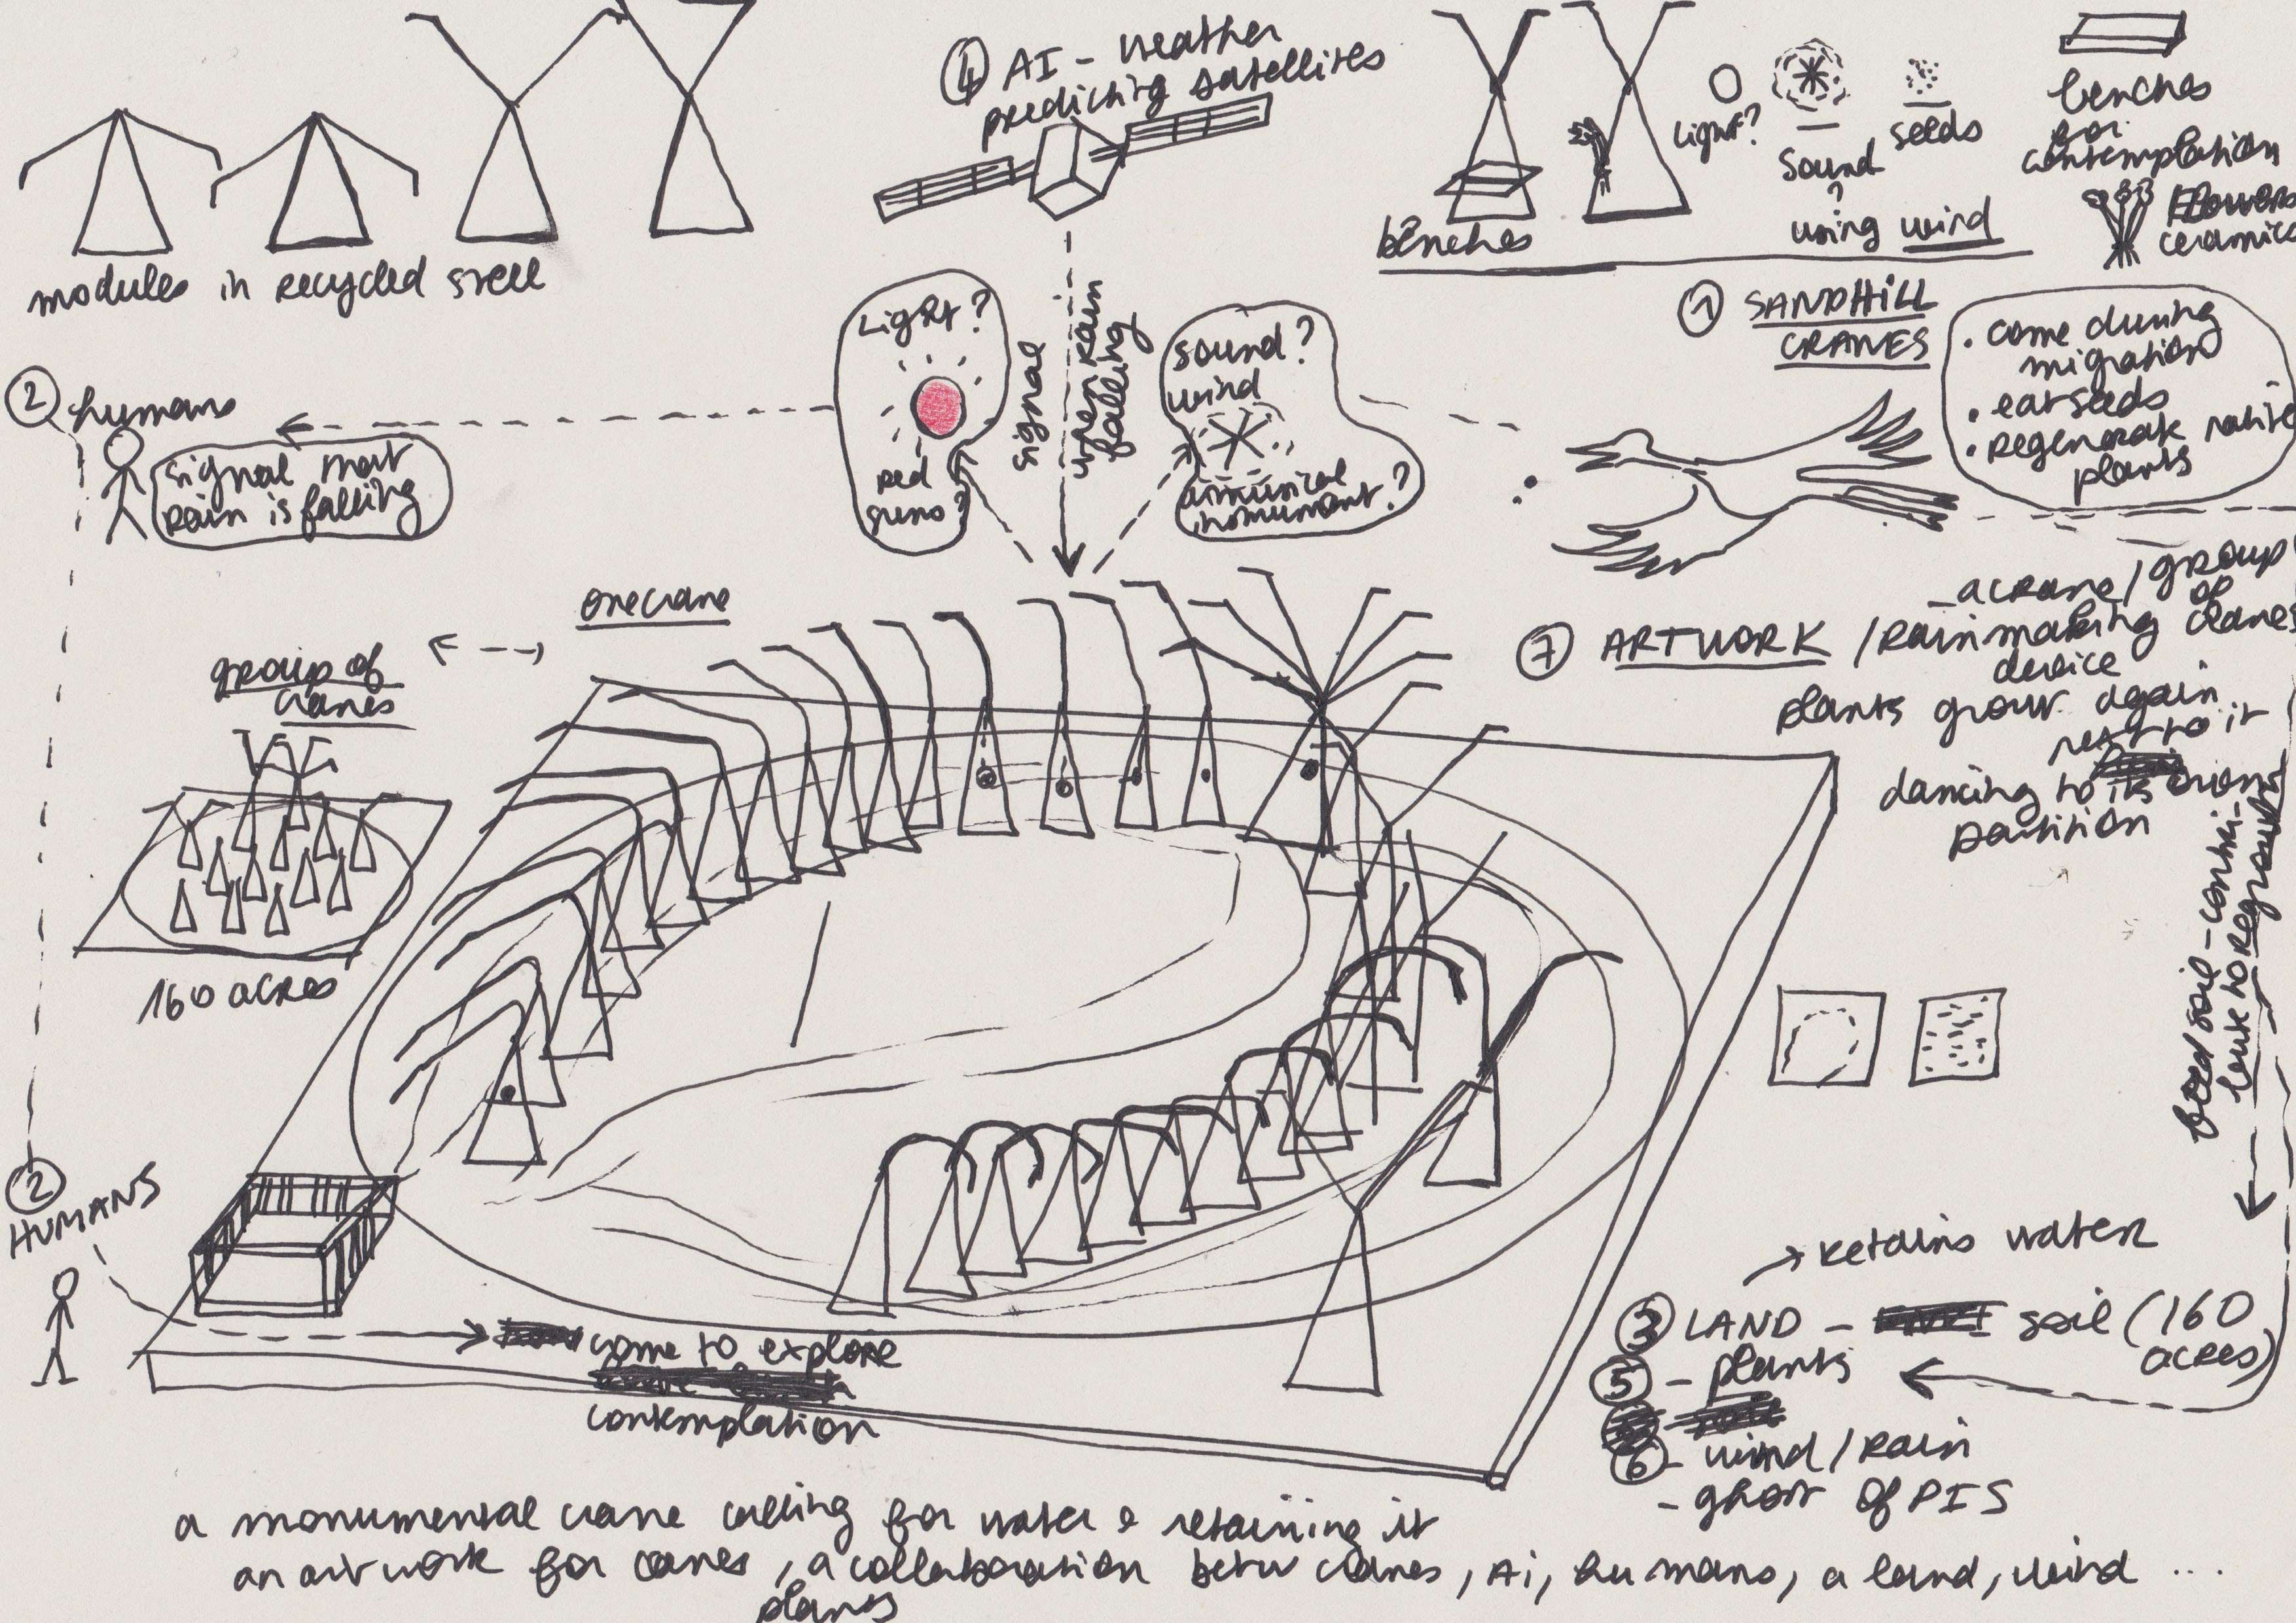 ④ AI - weather
predicting satellites
modules in recycled steel
benches
light?
sound
?
using wind
seeds
benches
for
contemplation
flowers
ceramics
① SANDHILL
CRANES
• come during
migration
• eat seeds
• regenerate native
plants
② humans
signal that
rain is falling
Light?
red
suns?
signal
when rain
falling
sound?
wind
musical
instrument?
one crane
group of
cranes
160 acres
⑦ ARTWORK / rainmaking
device
- a crane / group
of
cranes
plants grow again
next to it
dancing to its own
partition
feed soil - contri-
bute to regrowth
② HUMANS
come to explore
contemplation
→ retains water
③ LAND - soil (160
acres)
⑤ - plants
⑥ - wind / rain
- ghost of PIS
a monumental crane calling for water & retaining it
an artwork for cranes, a collaboration betw cranes, AI, humans, a land, wind ...
plants